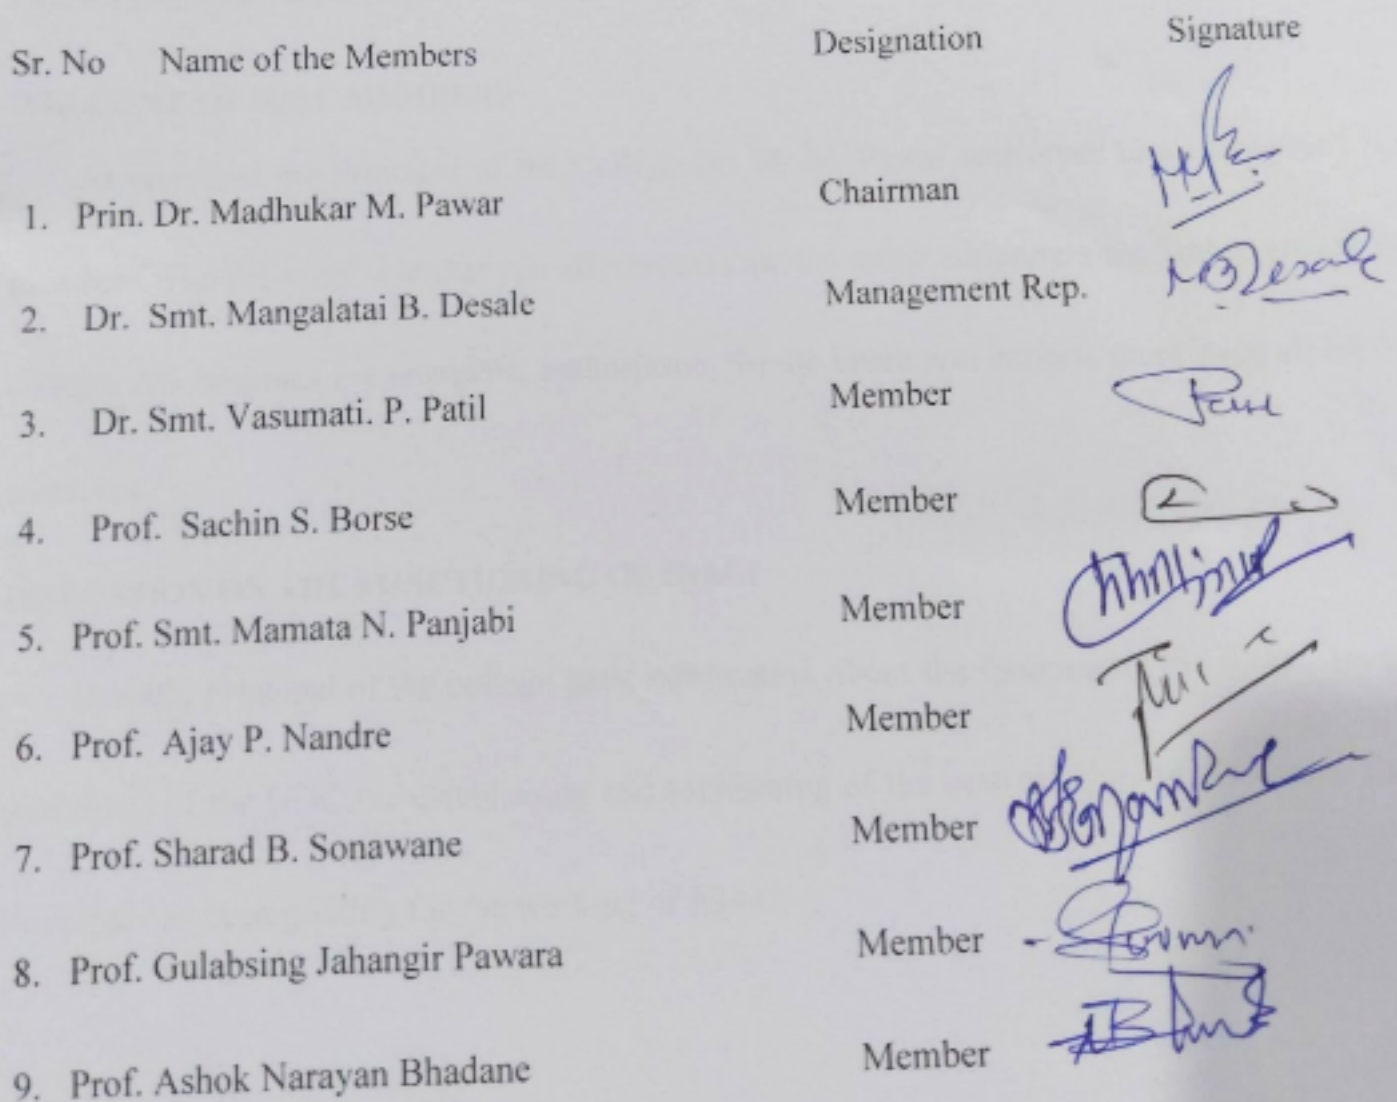 Sr. No Name of the Members Designation Signature
1. Prin. Dr. Madhukar M. Pawar Chairman
2. Dr. Smt. Mangalatai B. Desale Management Rep. MBDesale
3. Dr. Smt. Vasumati. P. Patil Member
4. Prof. Sachin S. Borse Member
5. Prof. Smt. Mamata N. Panjabi Member
6. Prof. Ajay P. Nandre Member
7. Prof. Sharad B. Sonawane Member
8. Prof. Gulabsing Jahangir Pawara Member
9. Prof. Ashok Narayan Bhadane Member